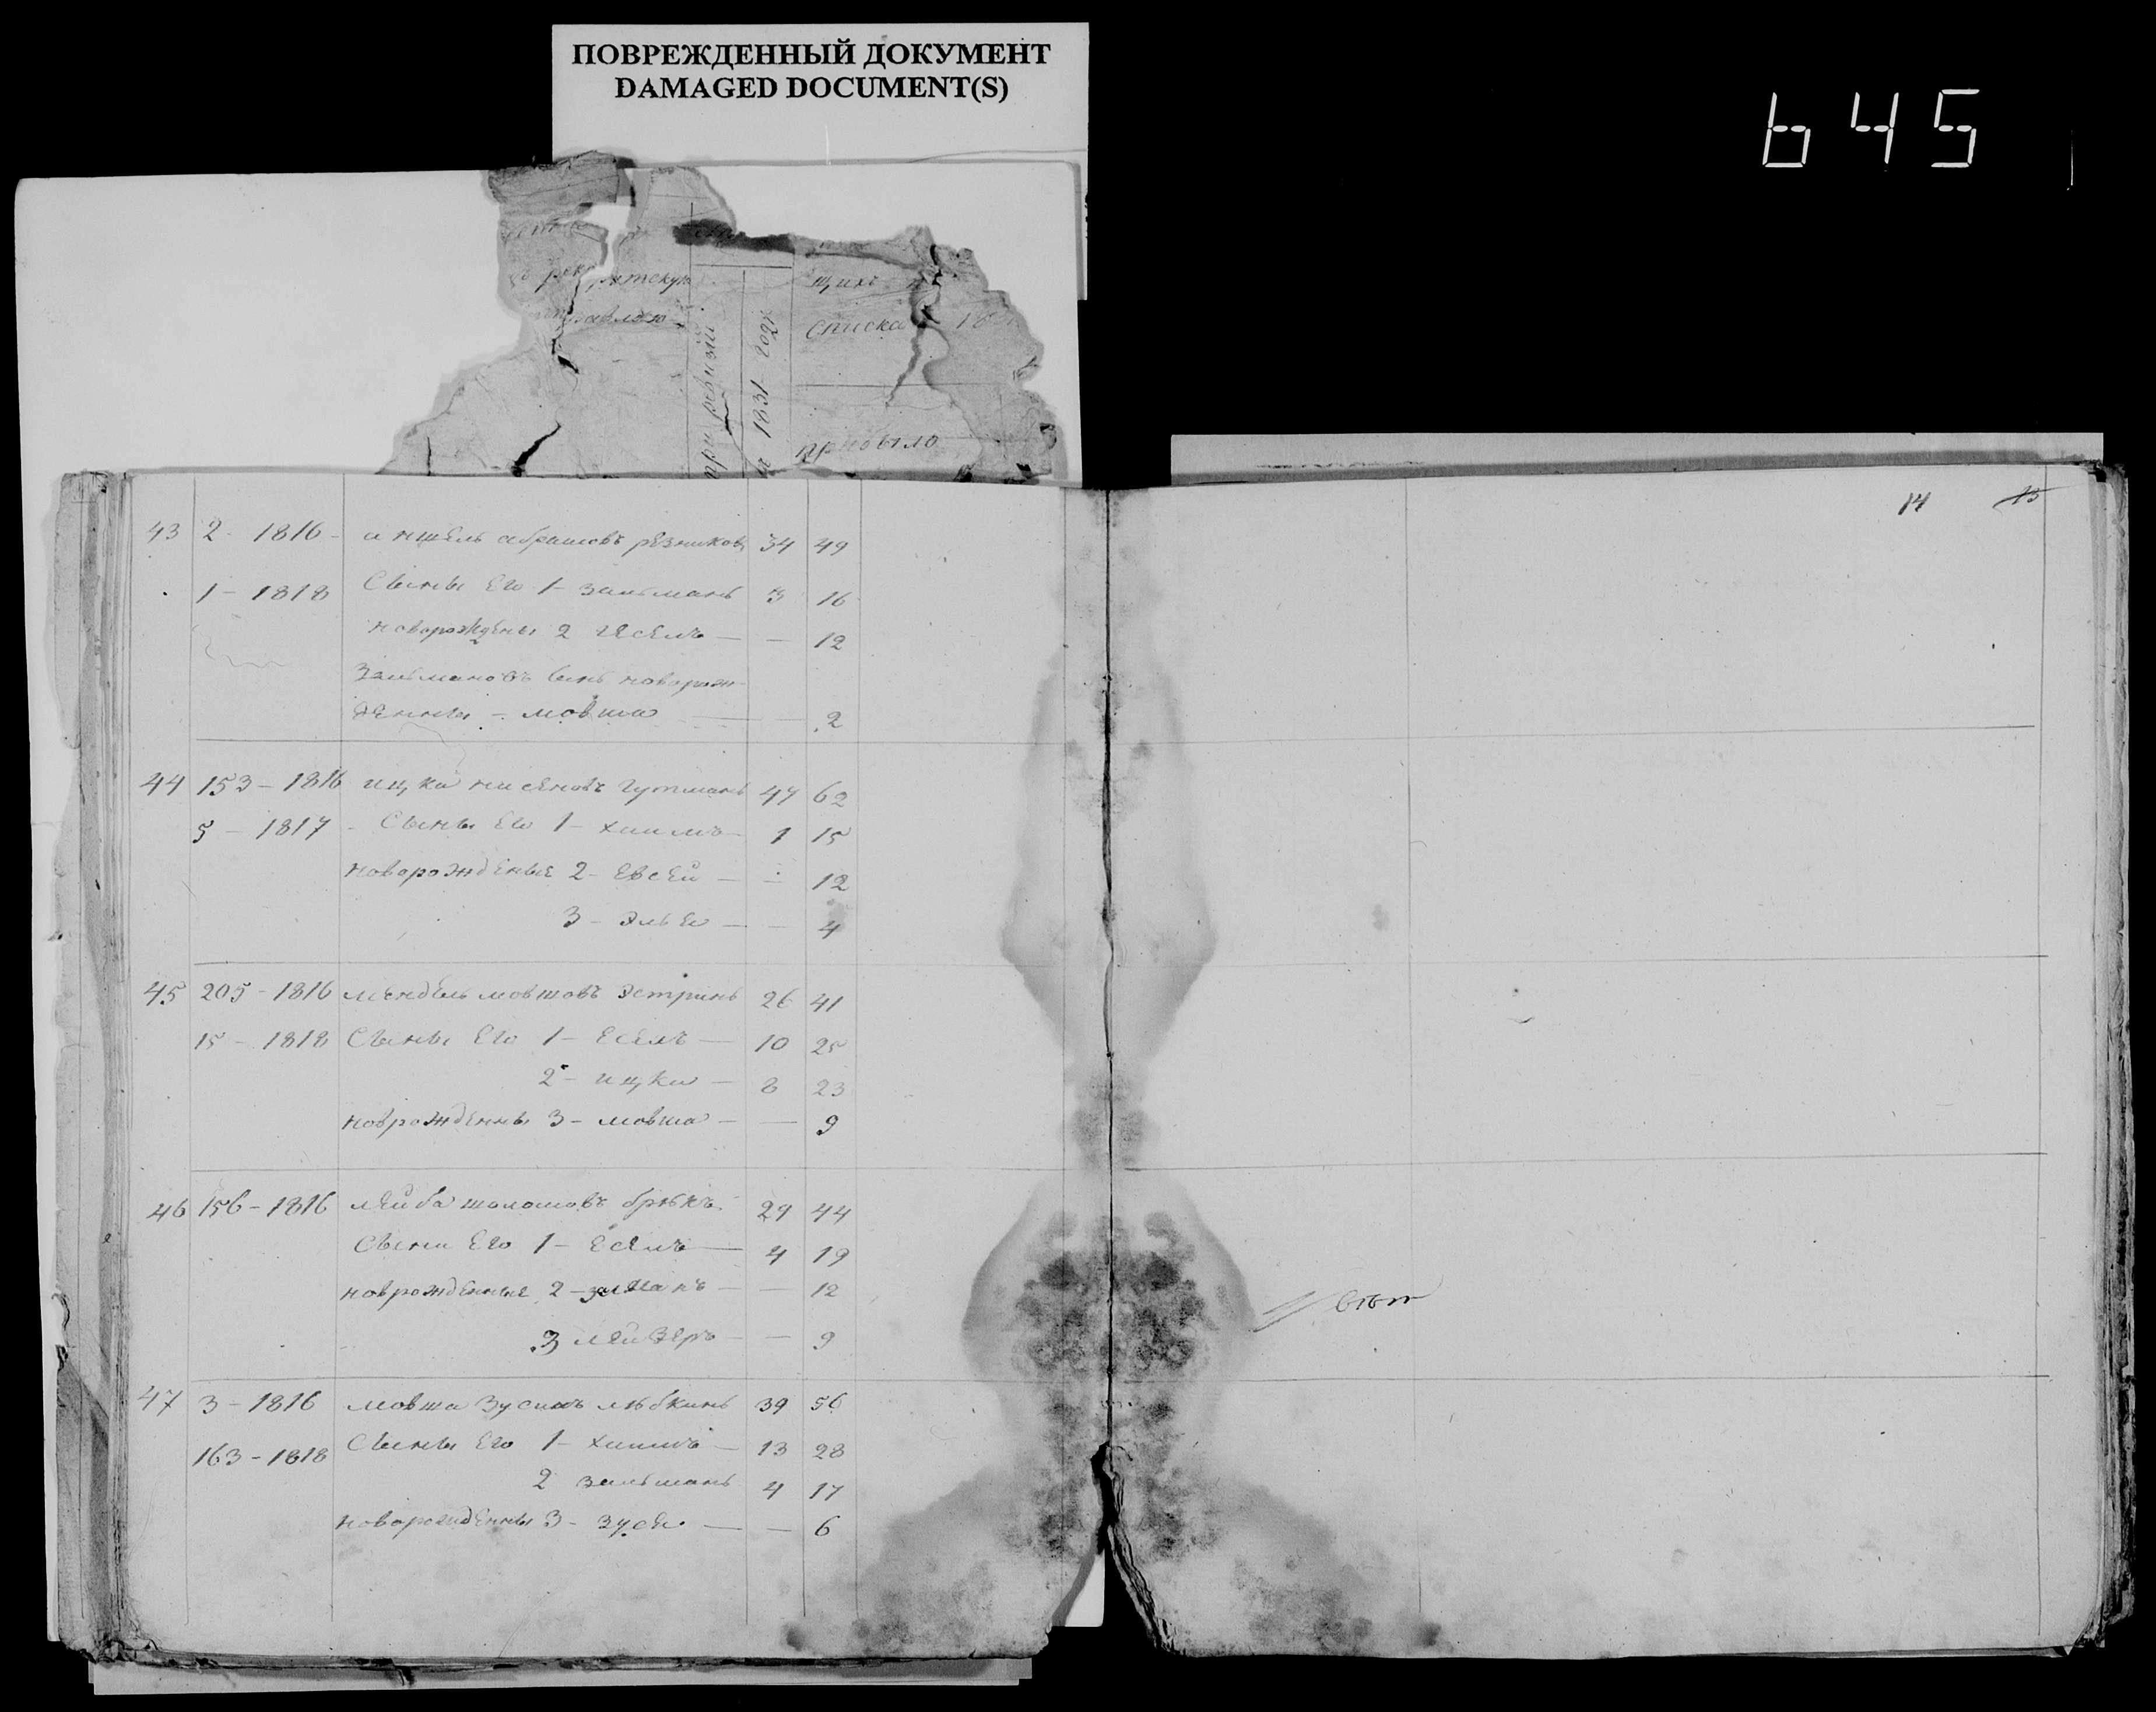 ПОВРЕЖДЕННЫЙ ДОКУМЕНТ
DAMAGED DOCUMENT(S)
645
щихъ
списка
при ревизіи
1831 года
прибыло
14 15
43 2 - 1816 - Абрамовъ Резниковъ 34 49
1 - 1818 Сыны Его 1 - Зальманъ 3 16
новорождены 2 Гесель — — 12
Зальмановъ сынъ новорож-
денны - Мовша — 2
44 153 - 1816 Ицка Нисеновъ Гутманъ 47 62
5 - 1817 - Сыны Его 1 - Хаимъ - 1 15
новорожденые 2 - Евсей — — 12
3 - Элья — — 4
45 205 - 1816 Мендель Мовшовъ Эстринъ 26 41
15 - 1818 Сыны Его 1 - Есель — 10 25
2 - Ицка — 8 23
новрожденны 3 - Мовша — — 9
46 156 - 1816 Лейба Шоломовъ 29 44
Сыны Его 1 - Есель — 4 19
новрожденные 2 - Залманъ — — 12
3 Лейзеръ — — 9
47 3 - 1816 Мовша 39 56
163 - 1818 Сыны Его 1 - Хаимъ — 13 28
2 Зальманъ 4 17
новорожденны 3 - Зусь — — 6